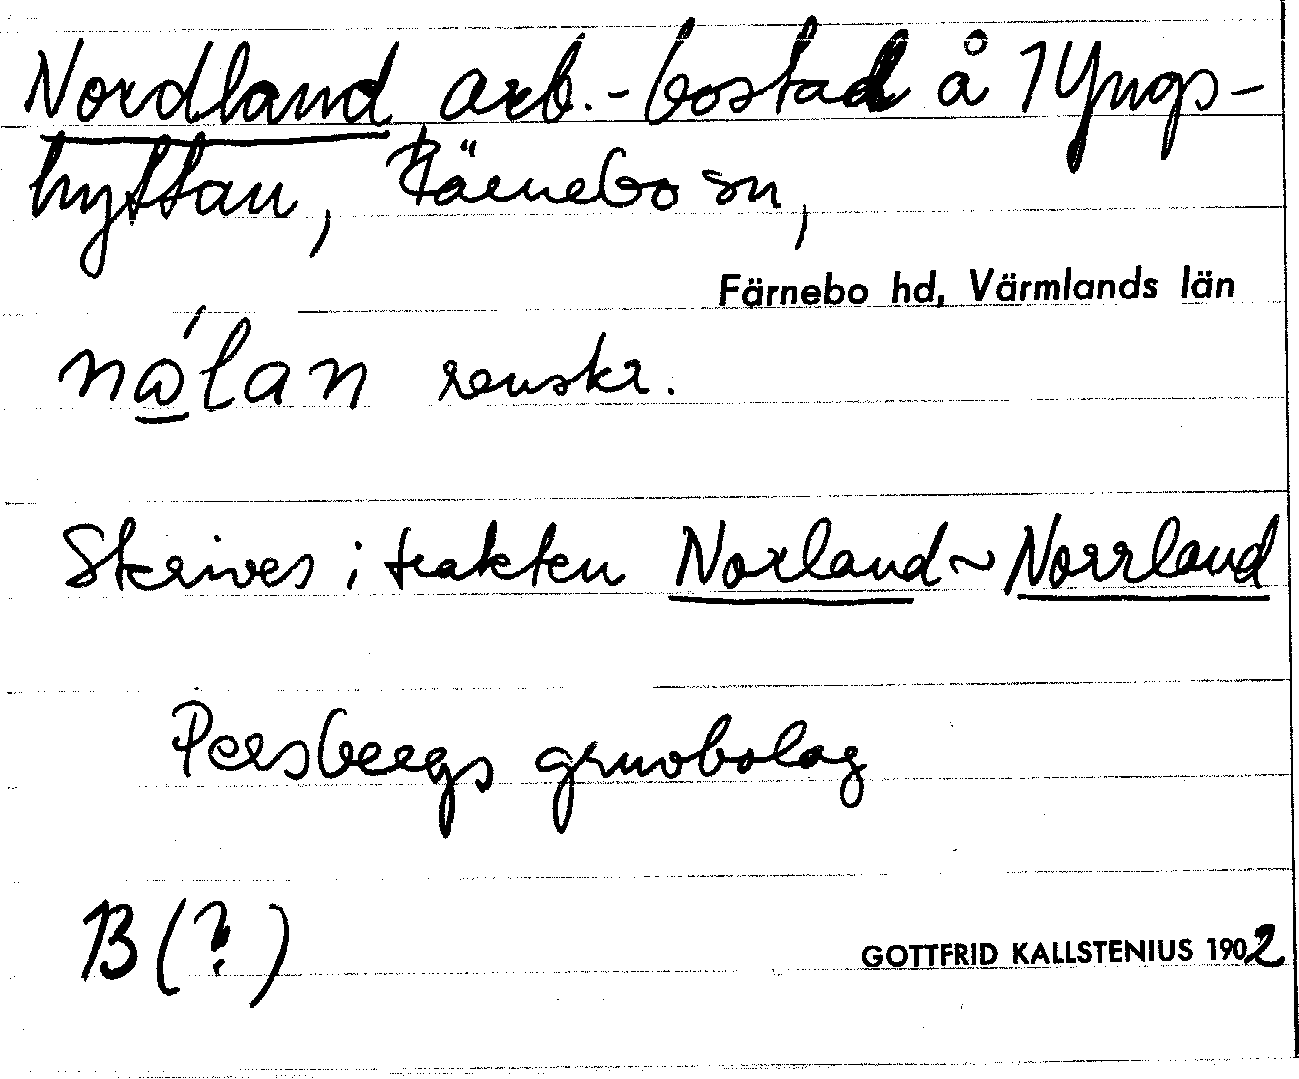 Nordland arb.-bostad å 1 Yngs-
hyttan, Färnebo sn,
Färnebo hd, Värmlands län
nǻlan renskr.
Skrives i trakten Norland ~ Norrland
Persbergs gruvbolag
B (?)
GOTTFRID KALLSTENIUS 1902